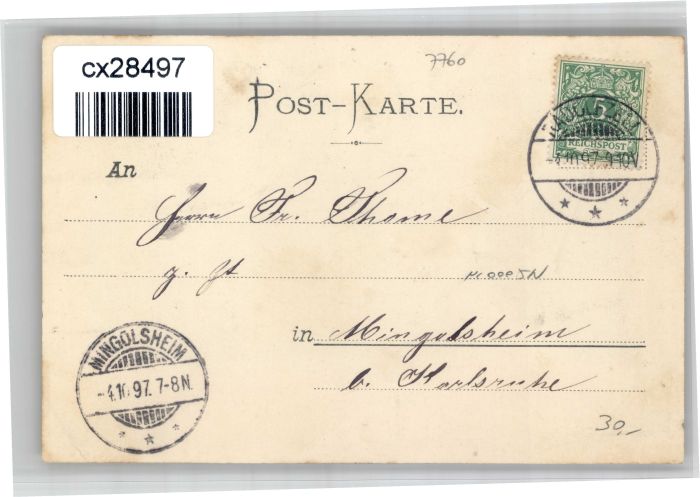 cx28497
7760
POST-KARTE.
5
REICHSPOST
-4.10.97. 9-10V.
An
Herrn Fr. Thome
z. Zt
in Mingolsheim
b. Karlsruhe
MINGOLSHEIM
-4.10.97. 7-8N.
30,-